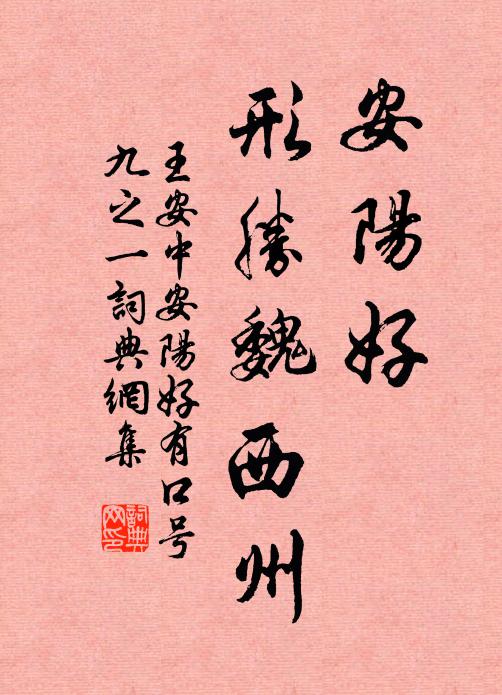 安陽好
形勝魏西州
王安中安陽好有口号
九之一詞典網集
詞典
网印